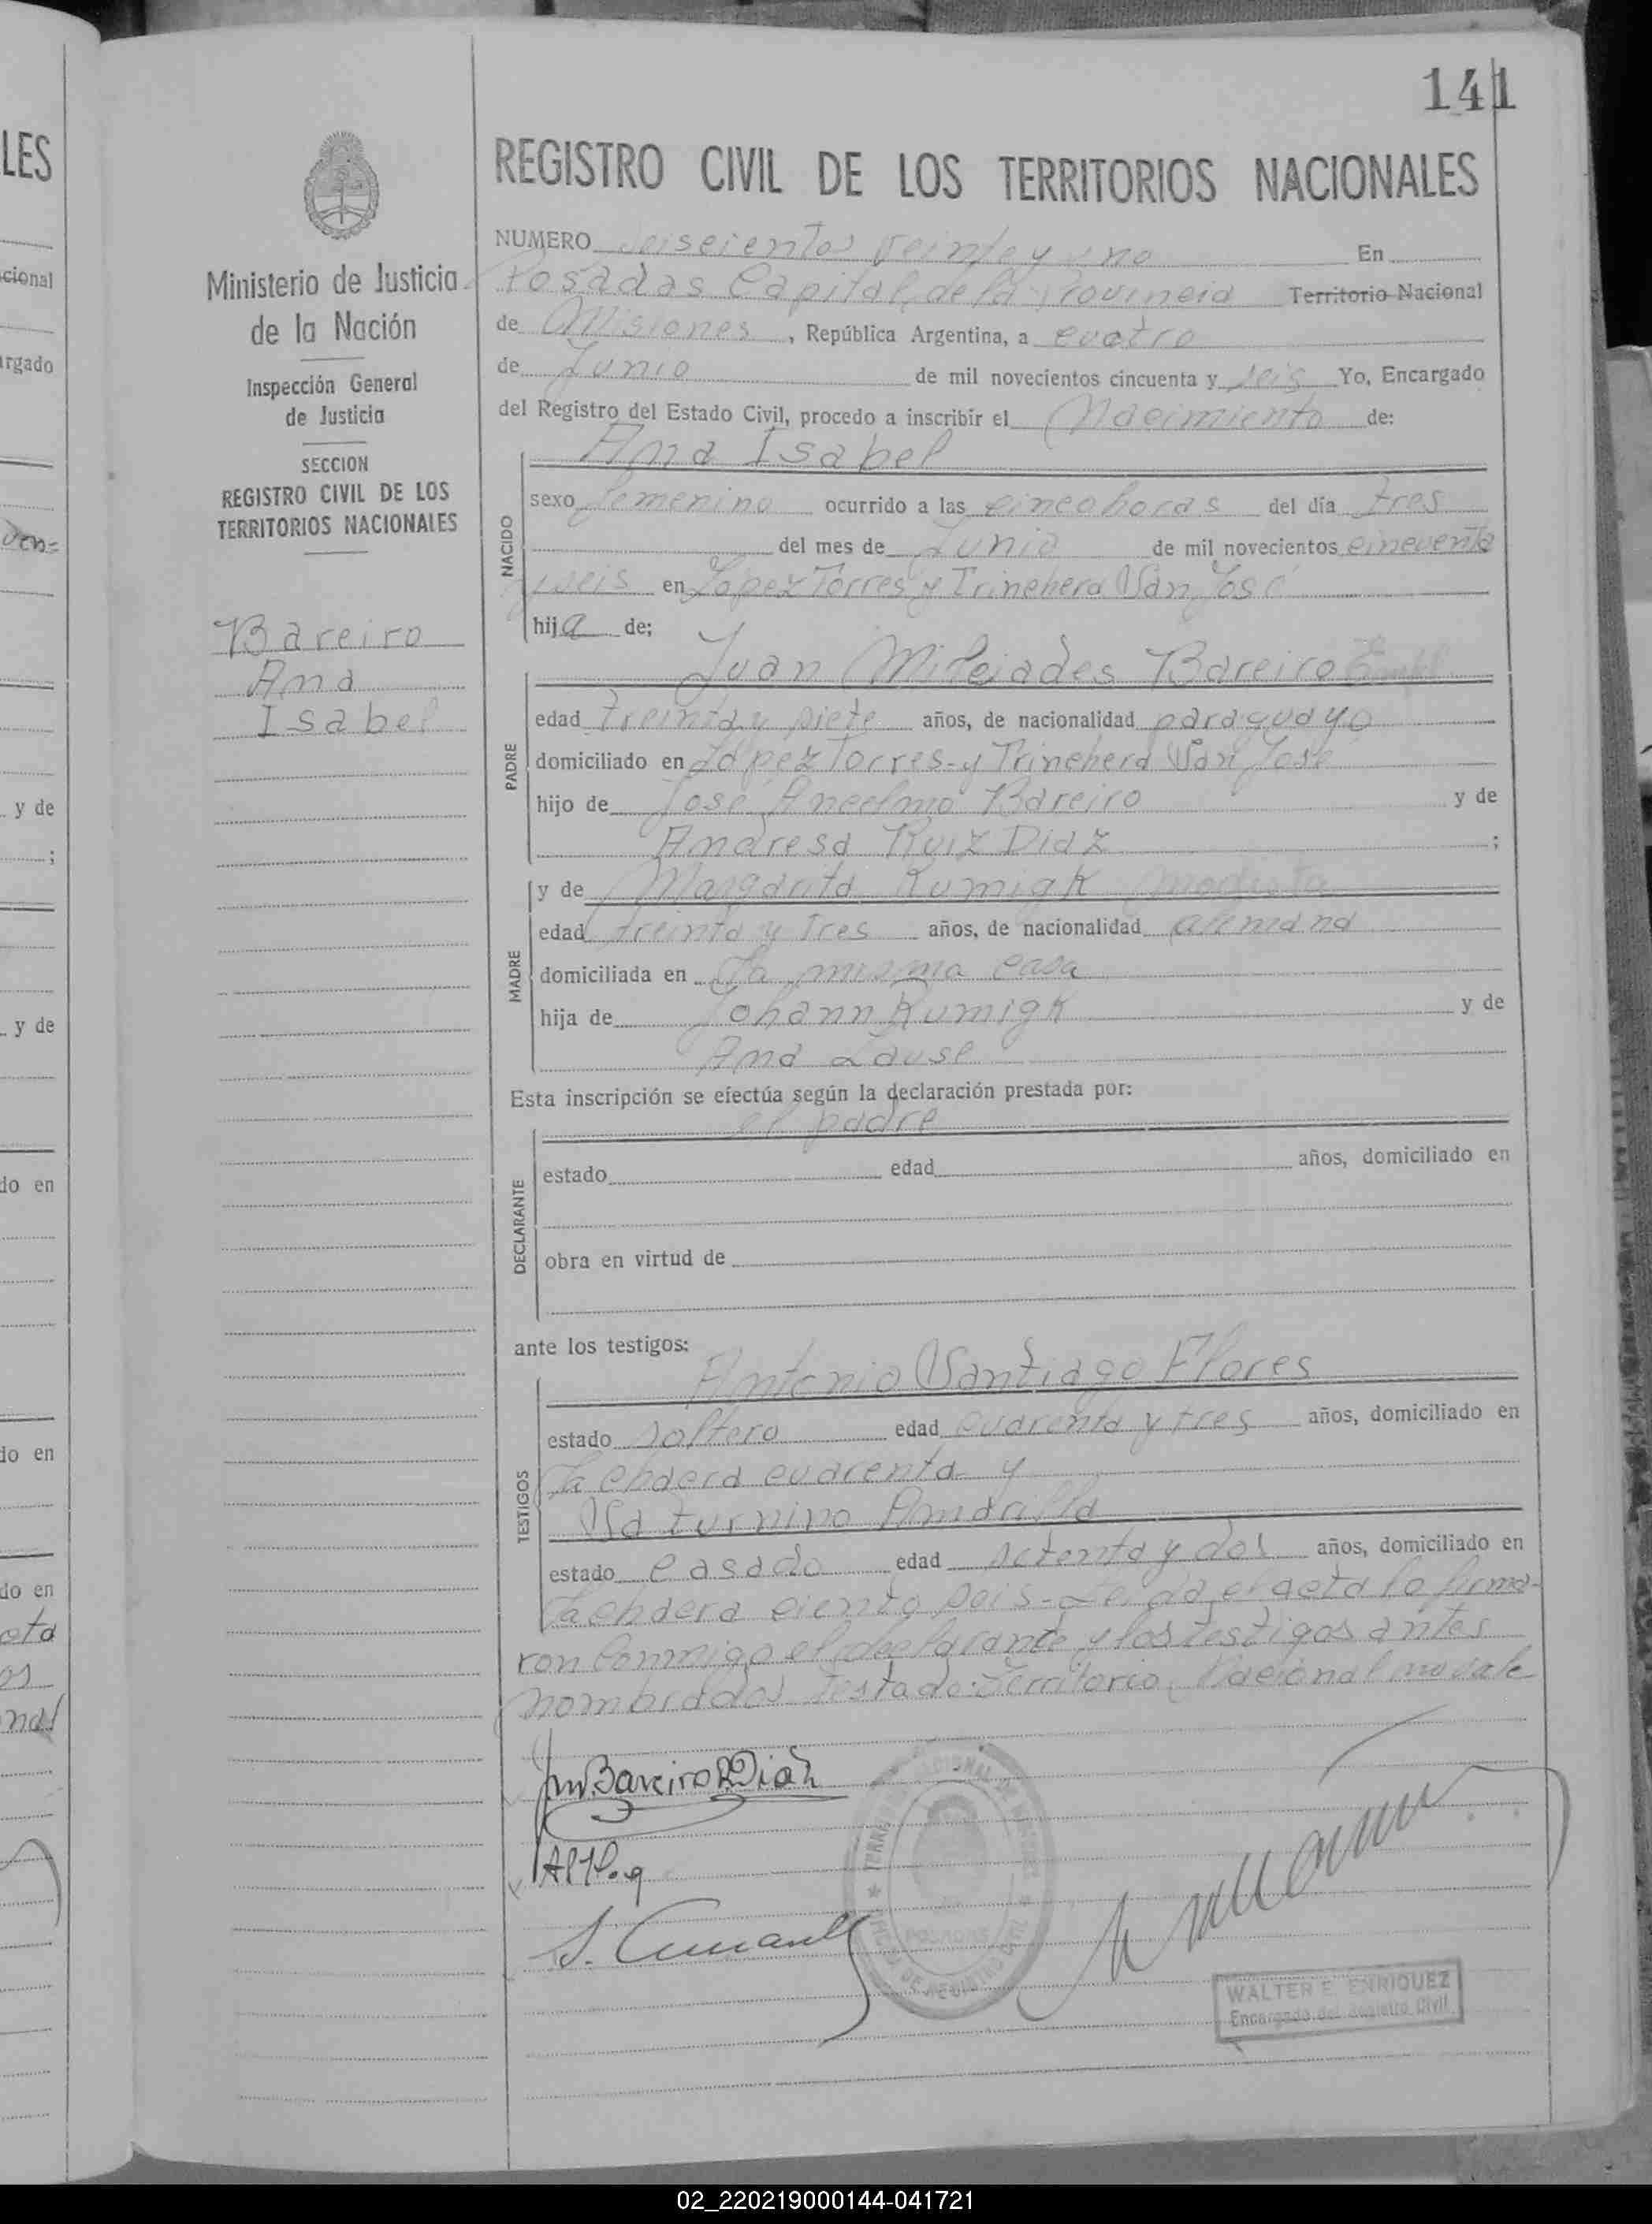 141
LES
REGISTRO CIVIL DE LOS TERRITORIOS NACIONALES
NUMERO seiscientos veinte y uno En
Posadas Capital de la Provincia Territorio Nacional
de Misiones, República Argentina, a cuatro
de Junio de mil novecientos cincuenta y seis Yo, Encargado
del Registro del Estado Civil, procedo a inscribir el Nacimiento de:
Ana Isabel
NACIDO
sexo femenino ocurrido a las cinco horas del día tres
del mes de Junio de mil novecientos cincuenta
y seis en López Torres y Trinchera San José
hija de:
Juan Milciades Bareiro
PADRE
edad treinta y siete años, de nacionalidad paraguayo
domiciliado en López Torres - y Trinchera San José
hijo de José Anselmo Bareiro y de
Andresa Ruiz Diaz ;
MADRE
y de Margarita Rumigk
edad treinta y tres años, de nacionalidad alemana
domiciliada en la misma casa
hija de Johann Rumigk y de
Ana Lause
Esta inscripción se efectúa según la declaración prestada por:
el padre
DECLARANTE
estado edad años, domiciliado en
obra en virtud de
ante los testigos:
Antonio Santiago Flores
TESTIGOS
estado soltero edad cuarenta y tres años, domiciliado en
la chacra cuarenta y
Saturnino Amarilla
estado casado edad setenta y dos años, domiciliado en
la chacra ciento seis - Leida el acta la firma-
ron conmigo el declarante y los testigos antes
nombrados Testado: Territorio Nacional no vale
Ministerio de Justicia
de la Nación
Inspección General
de Justicia
SECCION
REGISTRO CIVIL DE LOS
TERRITORIOS NACIONALES
Bareiro
Ana
Isabel
POSADAS
WALTER E. ENRIQUEZ
Encargado del Registro Civil
cional
argado
y de
;
y de
do en
do en
do en
02_220219000144-041721